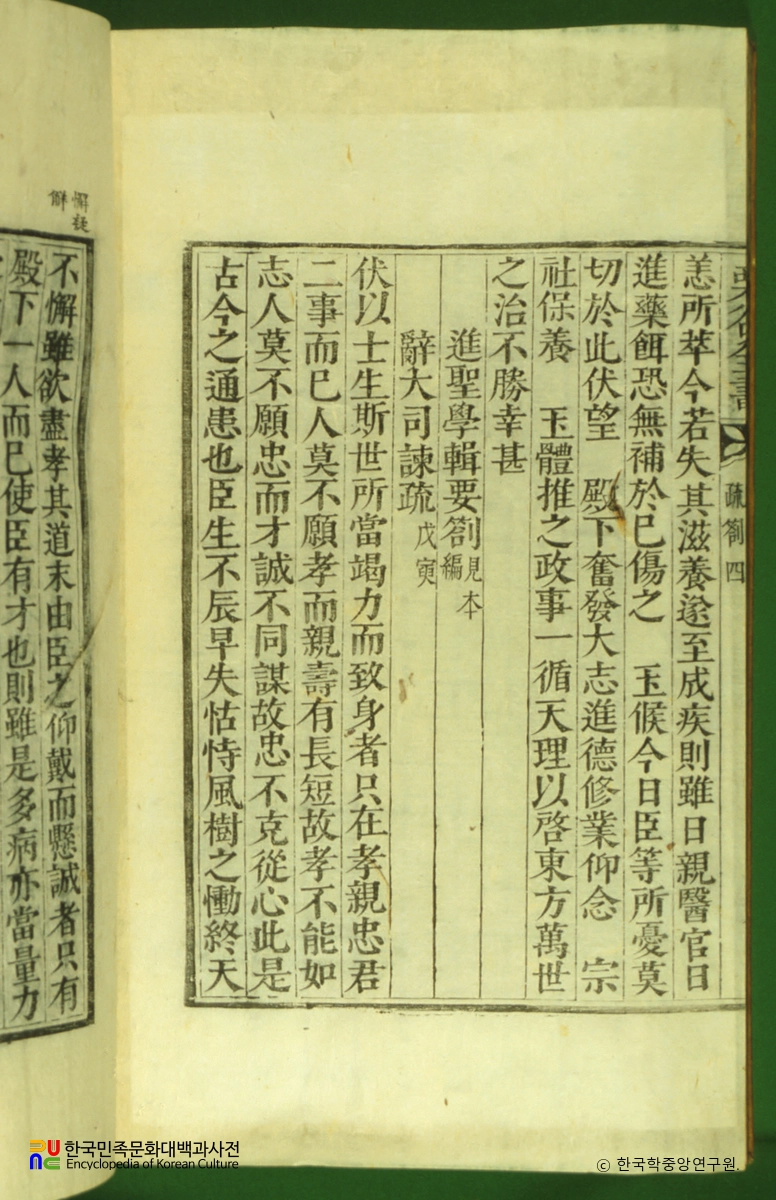 栗谷全書
疏劄 四
恙所萃今若失其滋養遂至成疾則雖日親醫官日
進藥餌恐無補於已傷之 玉候今日臣等所憂莫
切於此伏望 殿下奮發大志進德修業仰念 宗
社保養 玉體推之政事一循天理以啓東方萬世
之治不勝幸甚
進聖學輯要劄 見本編
辭大司諫疏 戊寅
伏以士生斯世所當竭力而致身者只在孝親忠君
二事而已人莫不願孝而親壽有長短故孝不能如
志人莫不願忠而才誠不同謀故忠不克從心此是
古今之通患也臣生不辰早失怙恃風樹之慟終天
懈疑
懈
不懈雖欲盡孝其道末由臣之仰戴而懸誠者只有
殿下一人而已使臣有才也則雖是多病亦當量力
한국민족문화대백과사전
Encyclopedia of Korean Culture
© 한국학중앙연구원.